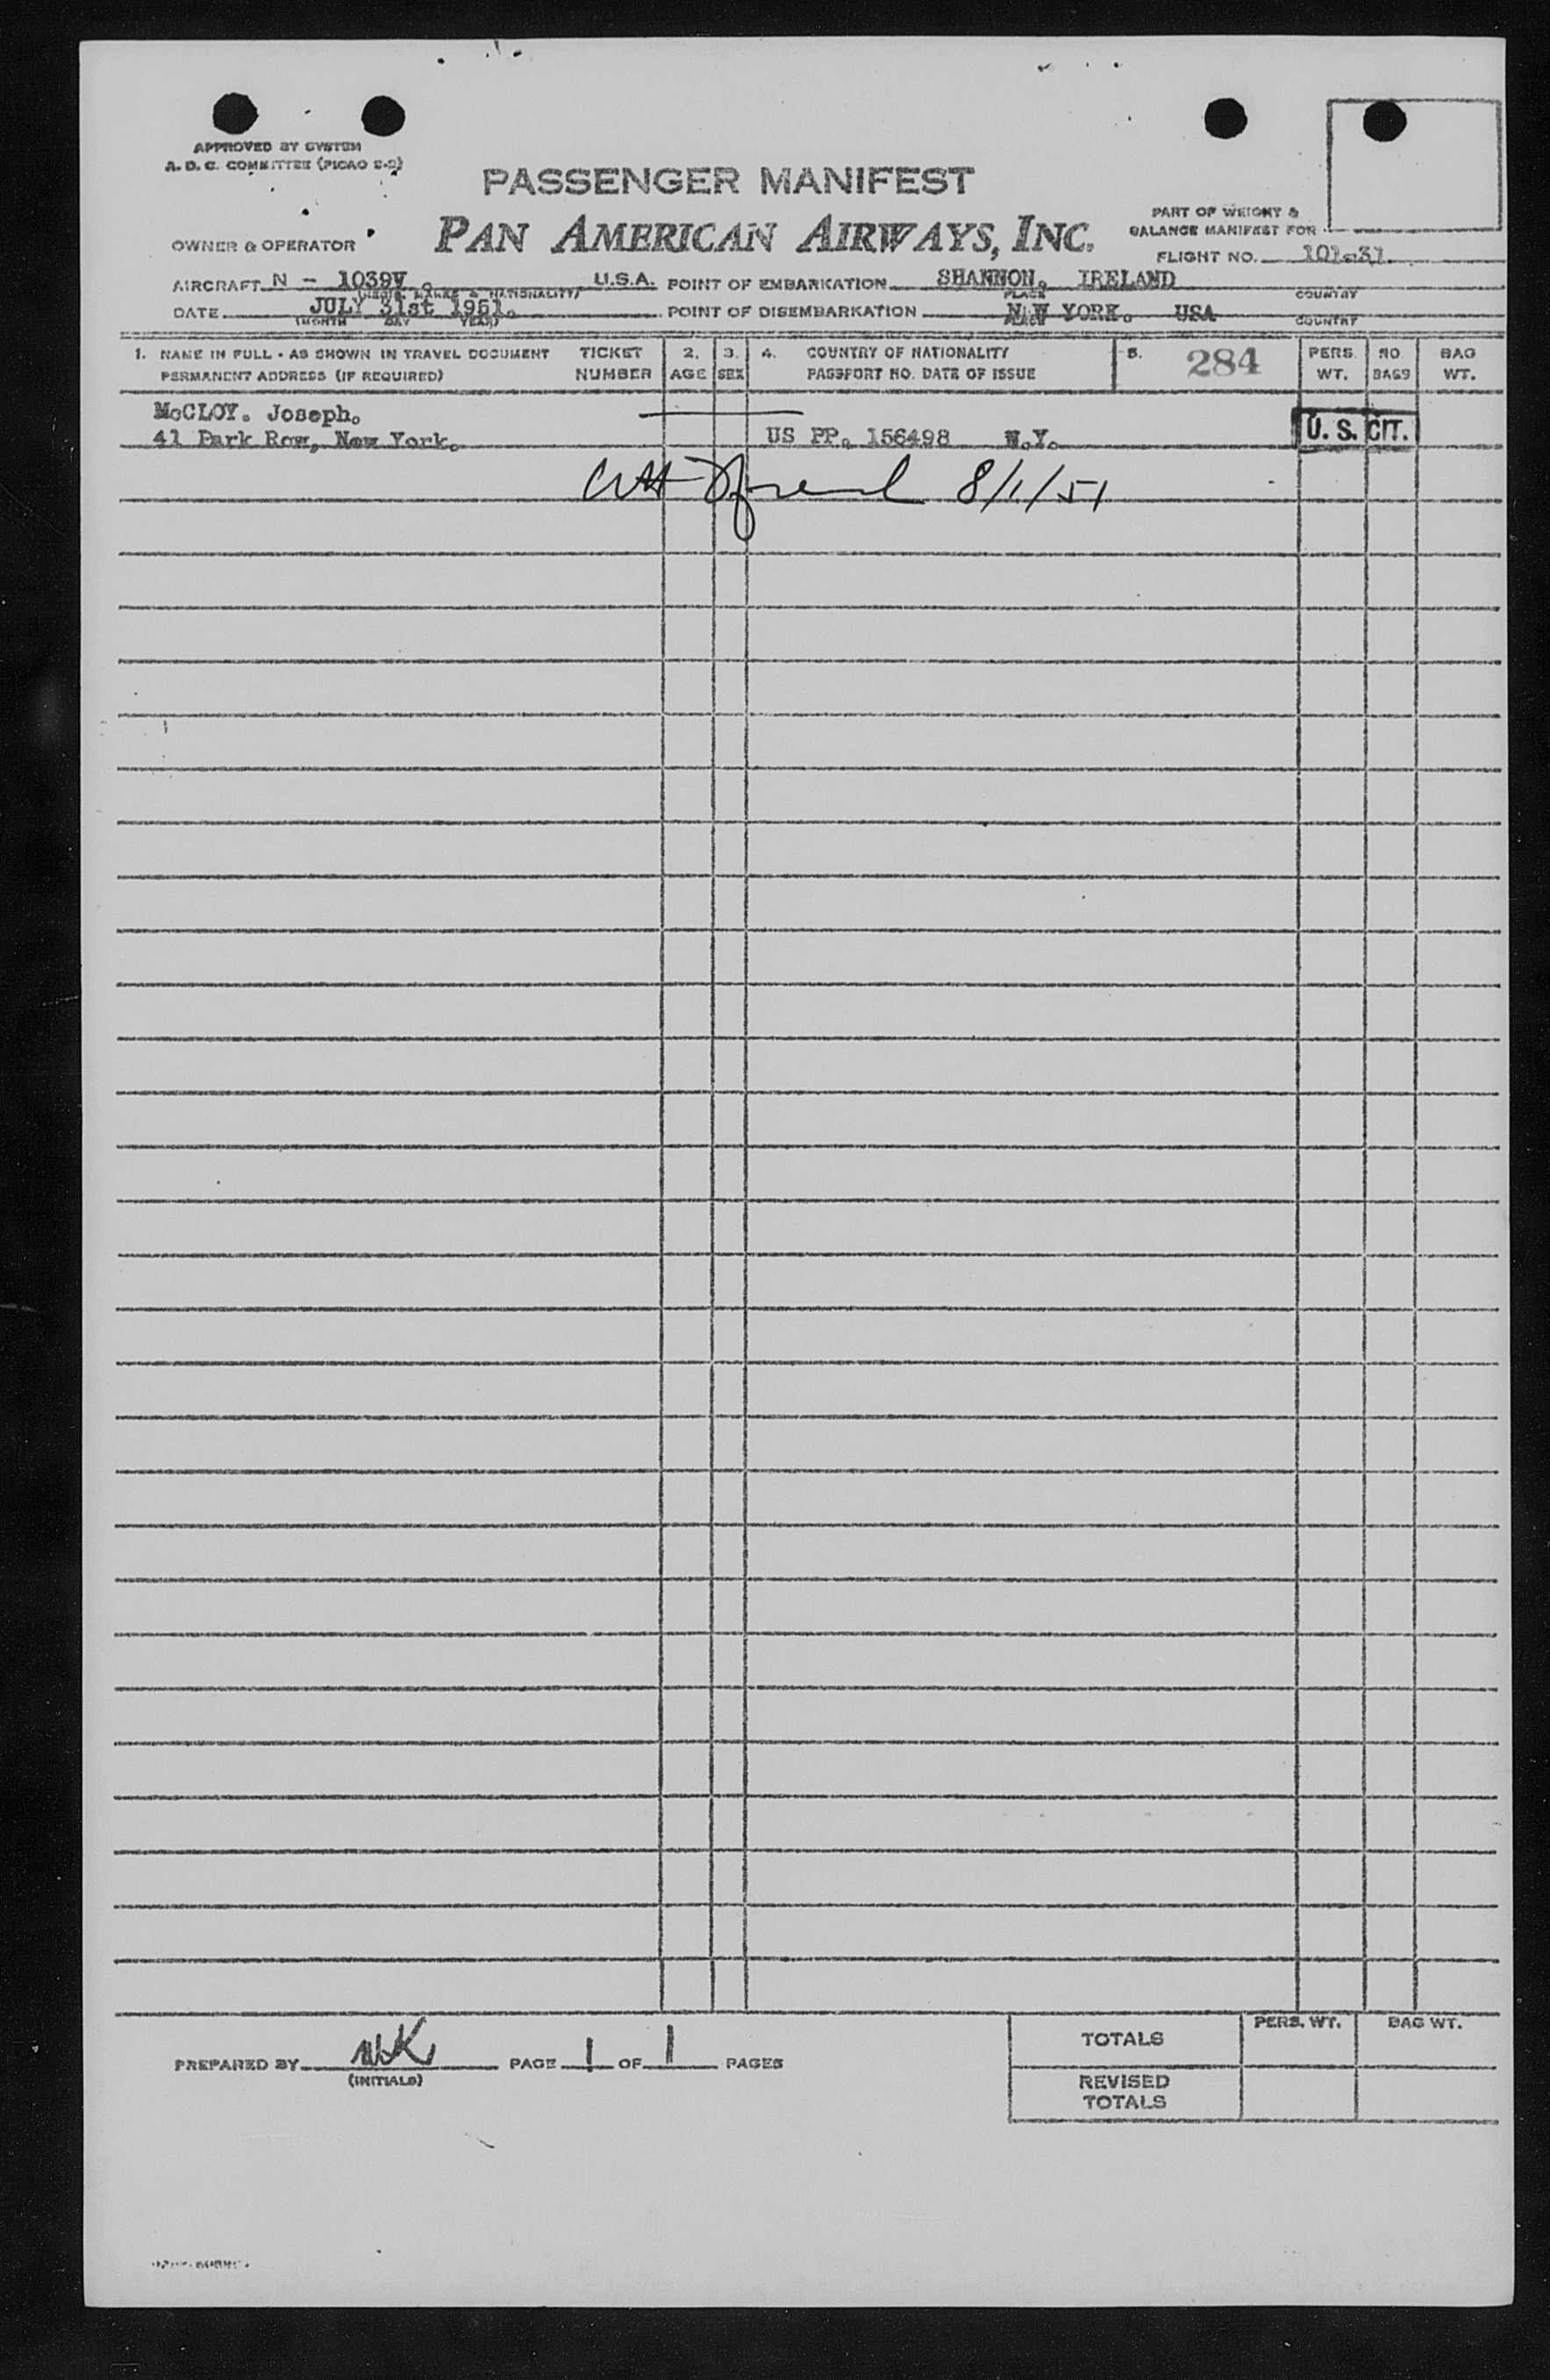 APPROVED BY SYSTEM
A. D. C. COMMITTEE (PICAO 2-2)
PASSENGER MANIFEST
PAN AMERICAN AIRWAYS, INC.
PART OF WEIGHT &
BALANCE MANIFEST FOR
OWNER & OPERATOR
FLIGHT NO. 101-31
AIRCRAFT N - 1039V U.S.A. POINT OF EMBARKATION SHANNON, IRELAND
(REGIS. MARKS & NATIONALITY) PLACE COUNTRY
DATE JULY 31st 1951. POINT OF DISEMBARKATION NEW YORK. USA
(MONTH DAY YEAR) PLACE COUNTRY
1. NAME IN FULL - AS SHOWN IN TRAVEL DOCUMENT TICKET 2. 3. 4. COUNTRY OF NATIONALITY 5. 284 PERS. NO. BAG
PERMANENT ADDRESS (IF REQUIRED) NUMBER AGE SEX PASSPORT NO. DATE OF ISSUE WT. BAGS WT.
McCLOY. Joseph.
41 Park Row, New York. US PP. 156498 N.Y. U. S. CIT.
8/1/51
TOTALS PERS. WT. BAG WT.
PREPARED BY WK PAGE 1 OF 1 PAGES
(INITIALS)
REVISED
TOTALS